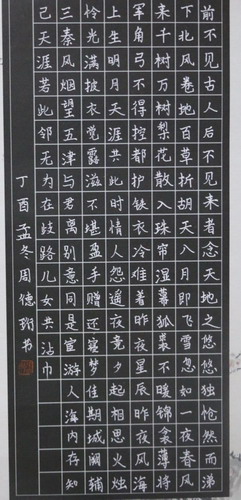 前不见古人后不见来者念天地之悠悠独怆然而涕
下北风卷地百草折胡天八月即飞雪忽如一夜春风
来千树万树梨花散入珠帘湿罗幕狐裘不暖锦衾薄将
军角弓不得控都护铁衣冷难着昨夜星辰昨夜风海
上生明月天涯共此时情人怨遥夜竟夕起相思灭烛
怜光满披衣觉露滋不堪盈手赠还寝梦佳期城阙辅
三秦风烟望五津与君离别意同是宦游人海内存知
己天涯若比邻无为在歧路儿女共沾巾
丁酉孟冬周德书